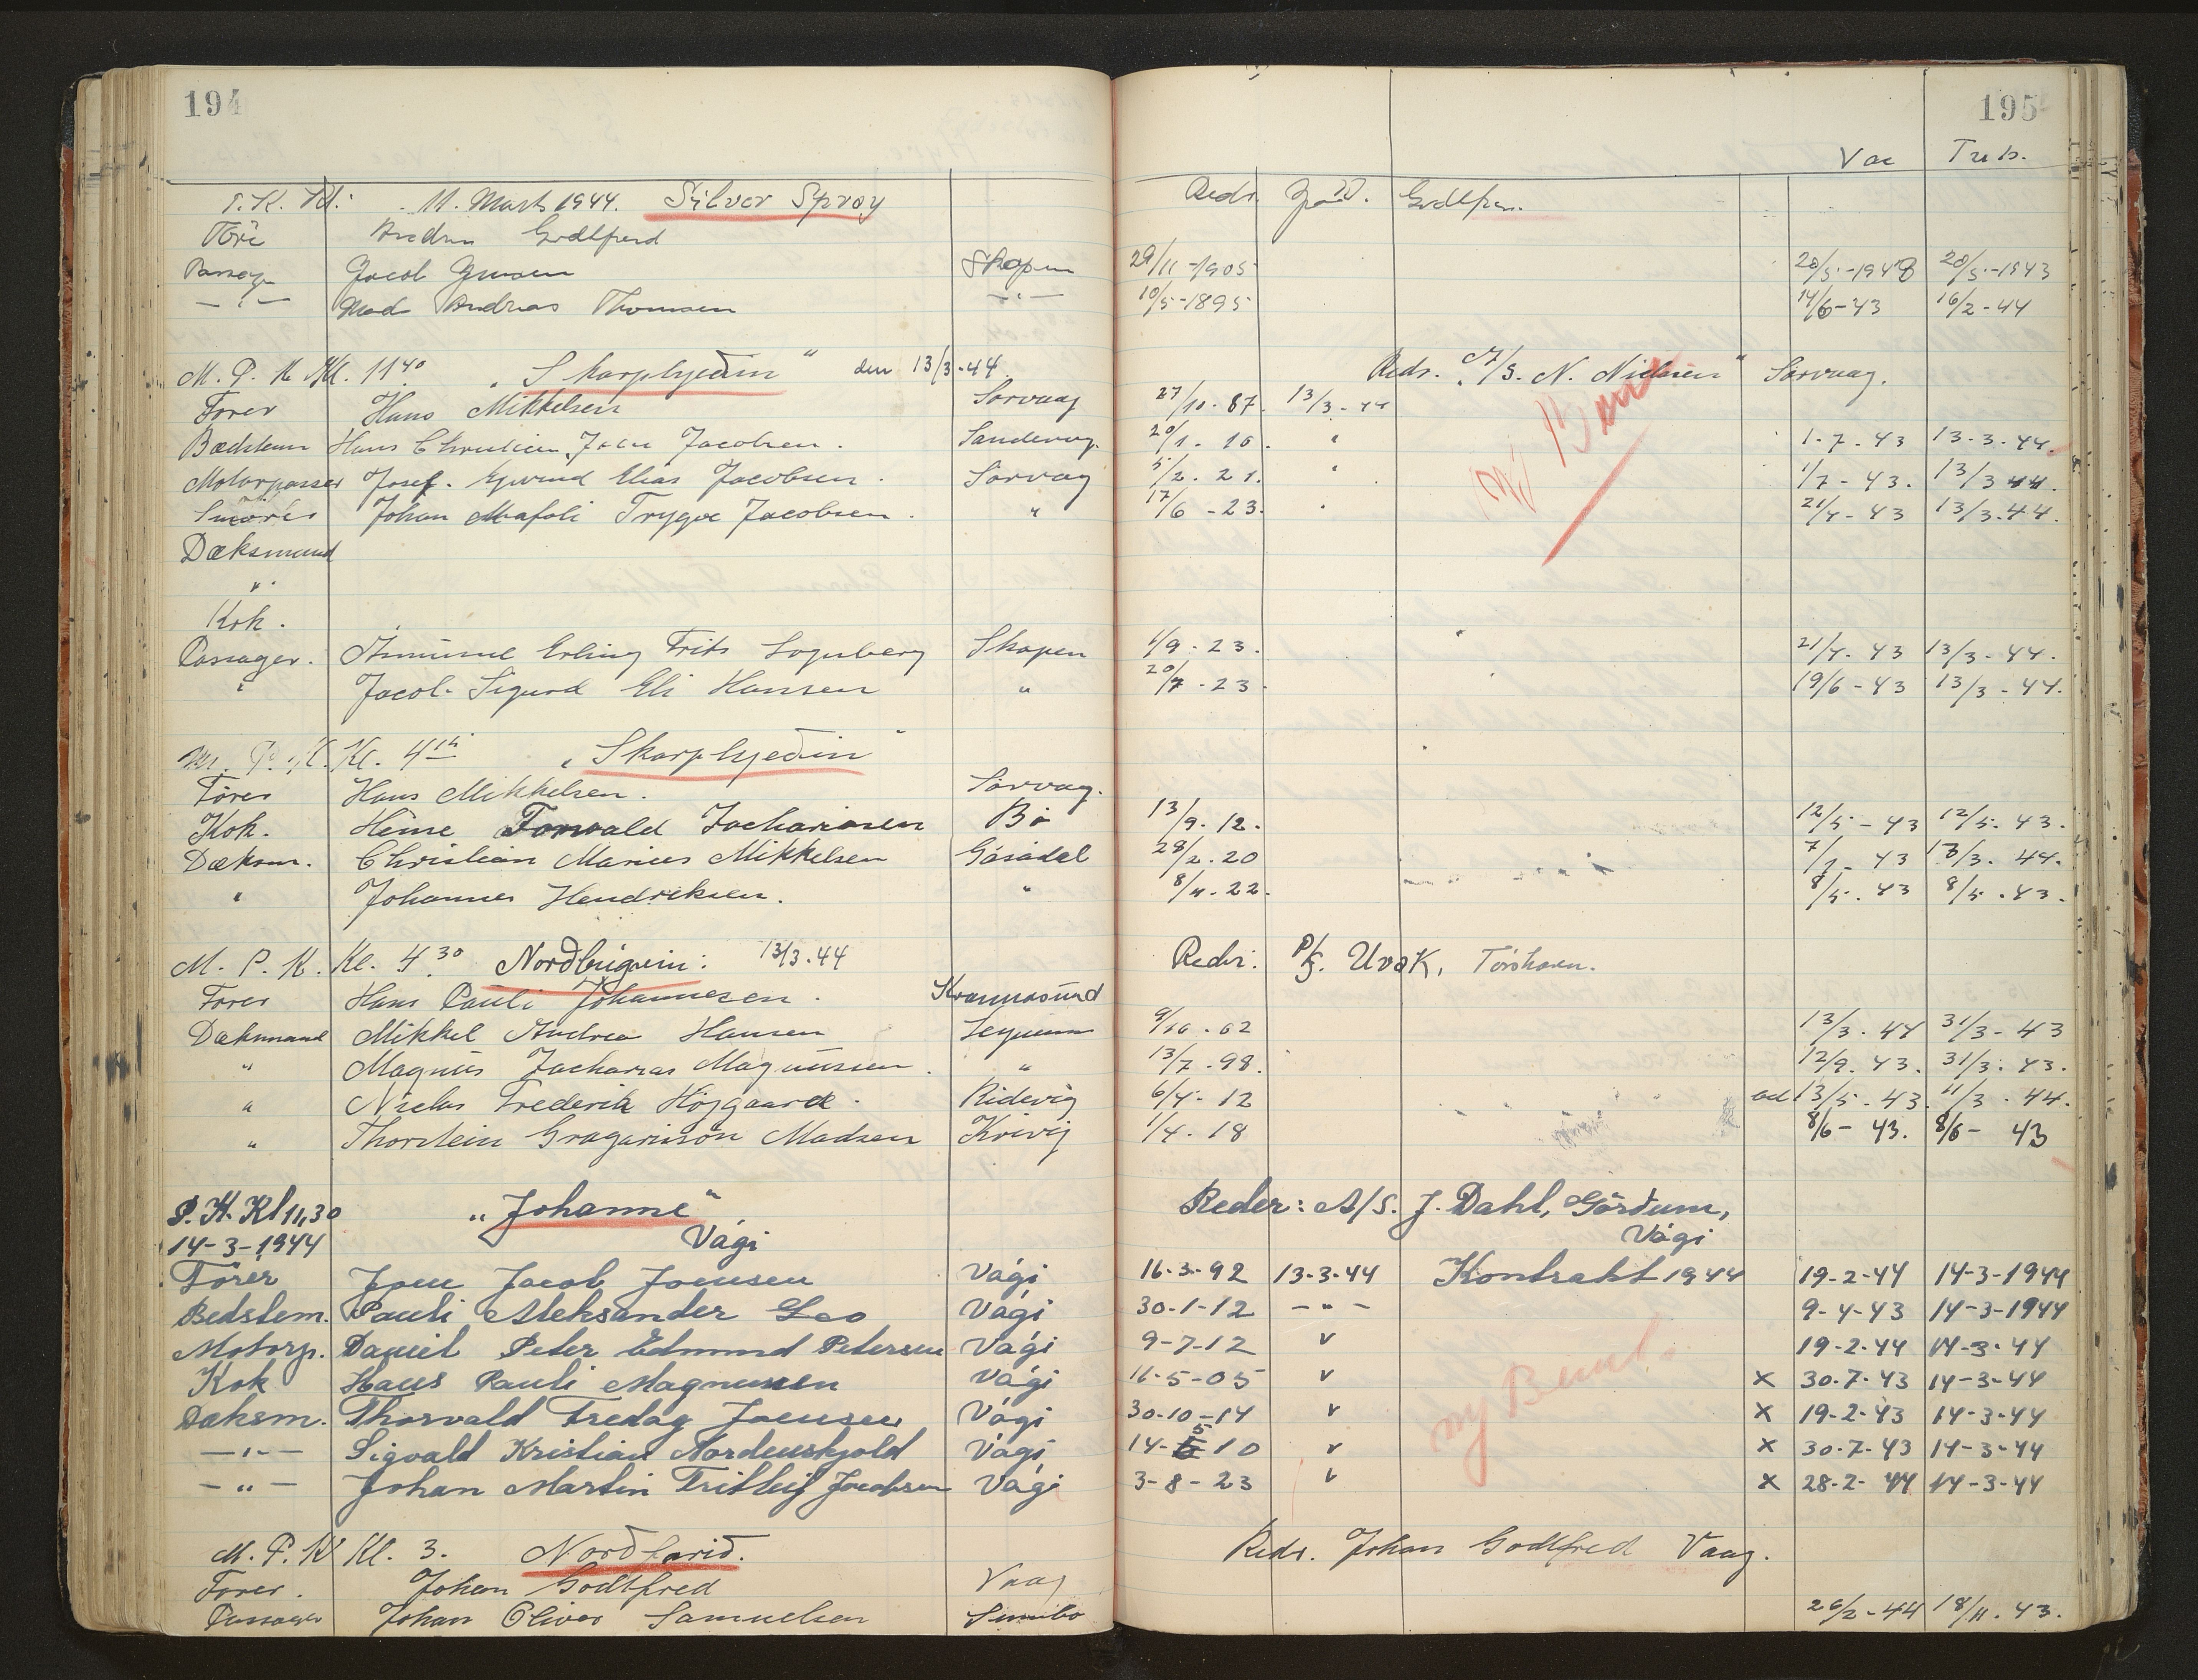 194
195
Vac Tub.
Kl. 11. Marts 1944. Silver Spray Redr. Godtfre.
Andrew Godtfred
Passag Jacob Jensen Skopun 29/11-1905 20/5-1943 20/5-1943
— " — Mads Andreas Thomsen — " — 10/5-1895 14/6-43 16/2-44
M. P. K Kl. 11 40 "Skarphjeðin" den 13/3-44 Redr. "A/S. N. Nielsen" Sørvaag.
Fører Hans Mikkelsen Sørvaag 27/10.87. 13/3-44 ny Beur
Bædstem Hans Christian Jacobsen. Sandevag. 20/1.16. " 1.7.43 13.3.44.
Motorpasser Josef Elias Jacobsen. Sørvag 5/2.21. " 1/7-43. 13/3 44.
Smører Johan Trygve Jacobsen. " 17/6-23. " 21/4-43 13/3.44.
Dæksmand
"
Kok.
Passager. Erling Frits Skopun 1/9.23. 21/4.43 13/3-44.
" Jacob Sigurd Eli Hansen " 20/7.23. 19/6-43 13/3-44.
M. P. K. Kl. 4 "Skarphjeðin"
Fører Hans Mikkelsen. Sørvag.
Kok. Torvald Zachariasen Bø 13/9.12. 12/5-43 12/5.43.
Dæksm. Christian Marius Mikkelsen Gásadal 28/2.20 43 13/3.44.
" Johannes Hendriksen. " 8/11.22. 8/5.43 8/5.43.
M. P. K. Kl. 4 30 Nordbúgvin: 13/3.44 Redr: P/F. Uvak, Tórshavn.
Fører Hans Pauli Johannesen.
Dæksmand Mikkel Andrea Hansen 9/10.02 13/3.44 31/3-43
" Magnus Zacharias Magnussen. " 13/7.98. 12/9.43. 31/3.43.
" Niclas Frederik Højgaard. Ridevig 6/4-12 13/5.43. 11/3.44.
" Thorstein Madsen Kvivig 1/4.18 8/6-43. 8/6-43
P. K. Kl 11,30 "Johanne" Reder: A/S. J. Dahl, Gørðum,
14-3-1944 Vági Vági
Fører Joen Jacob Joensen Vági 16-3-92 13-3-44 Kontrakt 1944 19-2-44 14-3-1944
Bedstem. Pauli Aleksander Leo Vági 30-1-12 — " — 9-4-43 14-3-1944
Motorp. Daniel Peter Edmund Petersen Vági 9-7-12 v 19-2-44 14-3-44
Kok Hans Pauli Magnussen Vági 16-5-05 v ny Beur. x 30-7-43 14-3-44
Dæksm. Thorvald Fredag Joensen Vági 30-10-14 v x 19-2-43 14-3-44
— " — Sigvald Kristian Nordenskjold Vági 14-5-10 v x 30-7-43 14-3-44
— " — Johan Martin Jacobsen Vági 3-8-23 v x 28-2-44 14-3-44
M. P. K Kl. 3. Nordfarið. Redr. Johan Godtfred Vaag.
Fører. Johan Godtfred Vaag
Passager Johan Oliver Samuelsen Sumbo 26/2-44 18/11.43.